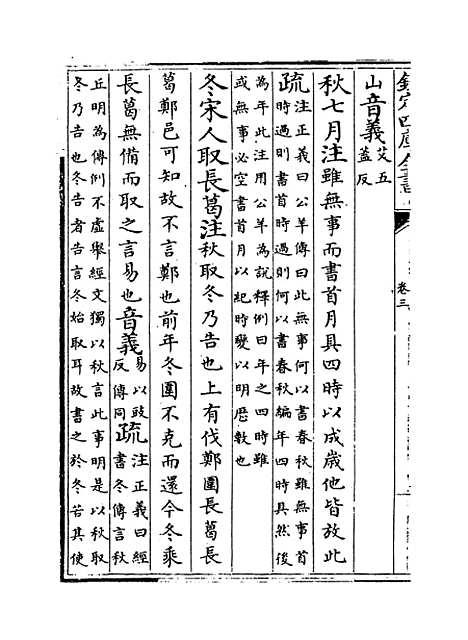 欽定四庫全書
卷三
山音義艾五
蓋反
秋七月注雖無事而書首月具四時以成歲他皆放此
疏注正義曰公羊傳曰此無事何以書春秋雖無事首
時過則書首時過則何以書春秋編年四時具然後
為年此注用公羊為說釋例曰年之四時雖
或無事必空書首月以紀時變以明厯數也
冬宋人取長葛注秋取冬乃告也上有伐鄭圍長葛長
葛鄭邑可知故不言鄭也前年冬圍不克而還今冬乘
長葛無備而取之言易也音義易以豉
反傳同疏注正義曰經
書冬傳言秋
丘明為傳例不虛舉經文獨以秋言此事明是以秋取
冬乃告也冬告者告言冬始取耳故書之於冬若其使